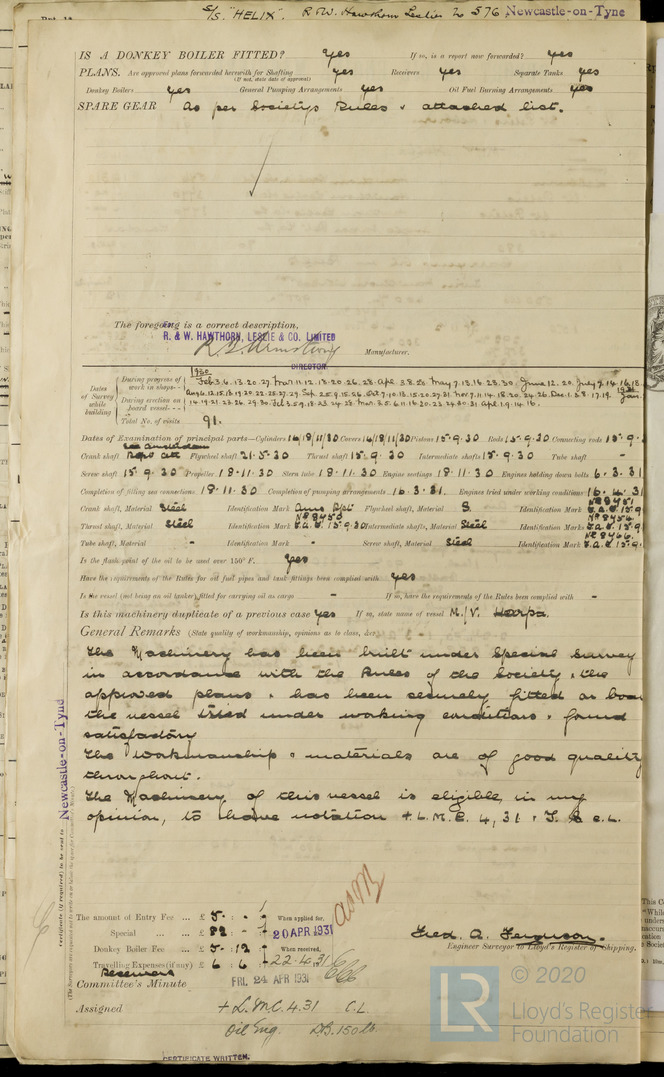 S/S. "HELIX". R & W. Hawthorn Leslie No 576 Newcastle-on-Tyne
IS A DONKEY BOILER FITTED? Yes If so, is a report now forwarded? yes
PLANS. Are approved plans forwarded herewith for Shafting yes Receivers yes Separate Tanks yes
(If not, state date of approval)
Donkey Boilers yes General Pumping Arrangements yes Oil Fuel Burning Arrangements yes
SPARE GEAR As per Society's Rules & attached list.
The foregoing is a correct description,
R. & W. HAWTHORN, LESLIE & CO. LIMITED
Manufacturer.
DIRECTOR
1930
Dates of Survey while building
During progress of work in shops - -
Feb 3. 6. 13. 20. 27 Mar 11. 12. 18. 20. 26. 28. Apr. 3. 8. 28 May 7. 13. 16 23. 30. June 12. 20. July 9. 14. 16. 18.
During erection on board vessel - - -
Total No. of visits 91.
Dates of Examination of principal parts—Cylinders 16/18/11/30 Covers 16/18/11/30 Pistons 15.9.30 Rods 15.9.30 Connecting rods 15.9.
Crank shaft Flywheel shaft 21.5.30 Thrust shaft 15.9.30 Intermediate shafts 15.9.30 Tube shaft -
Screw shaft 15.9.30 Propeller 18.11.30 Stern tube 18.11.30 Engine seatings 18.11.30 Engines holding down bolts 6.3.31
Completion of fitting sea connections 18.11.30 Completion of pumping arrangements 16.3.31. Engines tried under working conditions 16.4.31
Crank shaft, Material Steel Identification Mark Flywheel shaft, Material S. Identification Mark
Thrust shaft, Material Steel Identification Mark Intermediate shafts, Material Steel Identification Marks
Tube shaft, Material - Identification Mark - Screw shaft, Material Steel Identification Mark
Is the flash point of the oil to be used over 150° F. Yes
Have the requirements of the Rules for oil fuel pipes and tank fittings been complied with yes
Is the vessel (not being an oil tanker) fitted for carrying oil as cargo - If so, have the requirements of the Rules been complied with -
Is this machinery duplicate of a previous case yes If so, state name of vessel M/V. Harpa.
General Remarks (State quality of workmanship, opinions as to class, &c.)
The Machinery has been built under Special Survey
in accordance with the Rules of the Society & the
approved plans & has been securely fitted on boa
the vessel tried under working conditions & found
satisfactory
The workmanship & materials are of good quality
throughout.
The Machinery of this vessel is eligible, in my
opinion, to have notation + L.M.C. 4, 31 &
Newcastle-on-Tyne
Certificate (if required) to be sent to
The amount of Entry Fee ... £ 5 : - : When applied for,
Special ... ... £ 82 : - : 20 APR 1931
Donkey Boiler Fee ... £ 5 : 12 : When received,
Travelling Expenses (if any) £ 6 : 6 : 22.4.31
Fred. A. Ferguson.
Engineer Surveyor to Lloyd's Register of Shipping.
Committee's Minute FRI. 24 APR 1931
Assigned + L.M.C. 4.31 C.L.
Oil Eng. D.B. 150 lb.
CERTIFICATE WRITTEN.
LR
© 2020
Lloyd's Register
Foundation